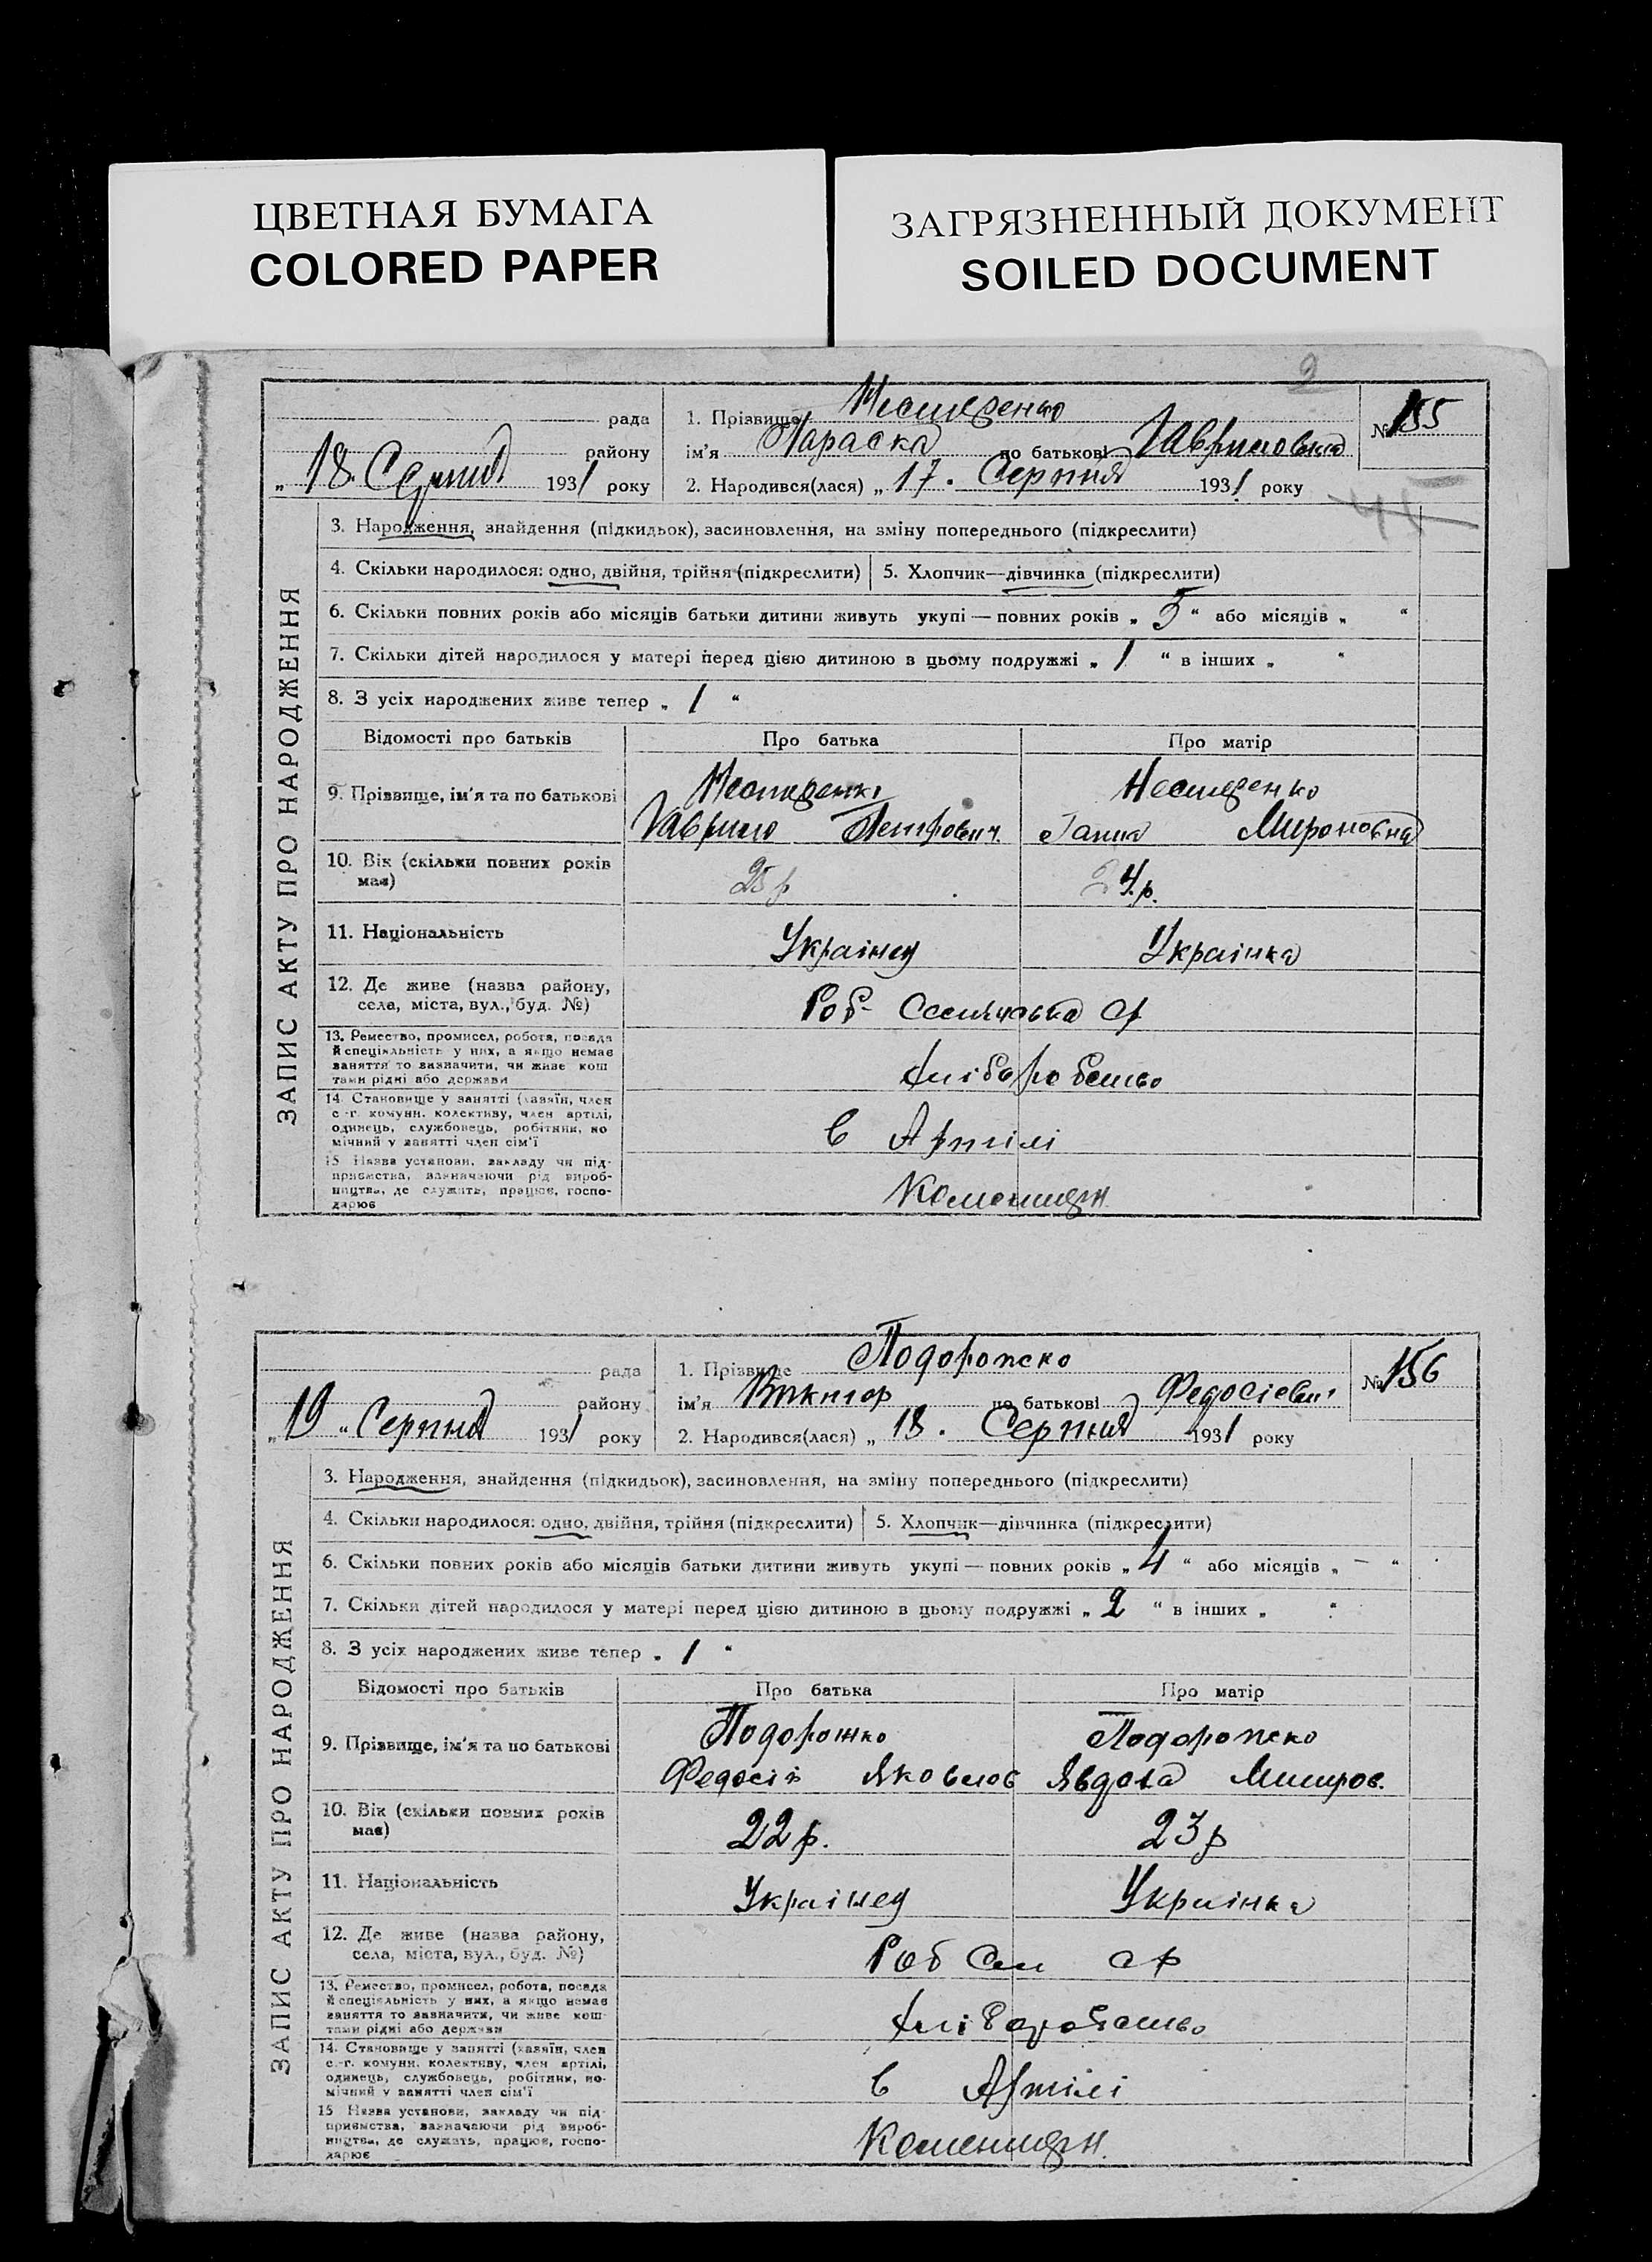 ЦВЕТНАЯ БУМАГА
COLORED PAPER
ЗАГРЯЗНЕННЫЙ ДОКУМЕНТ
SOILED DOCUMENT
2
рада
району
„ 18 " Серпня 1931 року
1. Прізвище Нестеренко
ім'я Параска по батькові Гавриловна
2. Народився(лася) „ 17 " Серпня 1931 року
№ 155
ЗАПИС АКТУ ПРО НАРОДЖЕННЯ
3. Народження, знайдення (підкидьок), засиновлення, на зміну попереднього (підкреслити)
4. Скільки народилося: одно, двійня, трійня (підкреслити) 5. Хлопчик—дівчинка (підкреслити)
6. Скільки повних років або місяців батьки дитини живуть укупі — повних років „ 5 “ або місяців „ “
7. Скільки дітей народилося у матері перед цією дитиною в цьому подружжі „ 1 “ в інших „ “
8. З усіх народжених живе тепер „ 1 “
Відомості про батьків Про батька Про матір
9. Прізвище, ім'я та по батькові
Нестеренко
Гаврило Петрович
Нестеренко
Ганна Мироновна
10. Вік (скільки повних років
має)
25 р
24 р.
11. Національність Українец Українка
12. Де живе (назва району,
села, міста, вул., буд. №)
Роб-
13. Ремество, промисел, робота, посада
й спеціяльність у них, а якщо немає
заняття то вазначити, чи живе кош
тами рідні або держави
хліборобство
14. Становище у занятті (хазяїн, член
с.-г. комуни, колективу, член артілі,
одинець, службовець, робітник, по
мічний у занятті член сім'ї
в Артілі
15 Назва установи, закладу чи під-
приємства, вазначаючи рід вироб-
ництва, де служить, працює, госпо-
дарює
рада
району
„ 19 “ Серпня 1931 року
1. Прізвище Подорожко
ім'я Виктор по батькові Федосієвич
2. Народився(лася) „ 18 " Серпня 1931 року
№ 156
ЗАПИС АКТУ ПРО НАРОДЖЕННЯ
3. Народження, знайдення (підкидьок), засиновлення, на зміну попереднього (підкреслити)
4. Скільки народилося: одно, двійня, трійня (підкреслити) 5. Хлопчик—дівчинка (підкреслити)
6. Скільки повних років або місяців батьки дитини живуть укупі — повних років „ 4 “ або місяців „ — “
7. Скільки дітей народилося у матері перед цією дитиною в цьому подружжі „ 2 “ в інших „ “
8. З усіх народжених живе тепер „ 1 “
Відомості про батьків Про батька Про матір
9. Прізвище, ім'я та по батькові
Подорожко
Федосій Яковлов
Подорожко
Явдоха
10. Вік (скільки повних років
має)
22 р.
23 р
11. Національність Українец Українка
12. Де живе (назва району,
села, міста, вул., буд. №)
Роб Сел
13. Ремество, промисел, робота, посада
й спеціяльність у них, а якщо немає
заняття то вазначити, чи живе кош
тами рідні або держави
хліборобство
14. Становище у занятті (хазяїн, член
с.-г. комуни, колективу, член артілі,
одинець, службовець, робітник, по-
мічний у занятті член сім'ї
в Артілі
15 Назва установи, закладу чи під-
приємства, вазначаючи рід вироб-
ництва, де служить, працює, госпо-
дарює